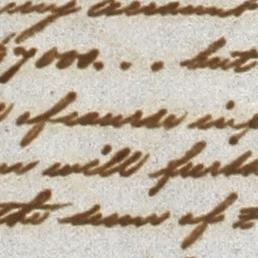 my account
$7000... but
of course in
will furth
the sum of